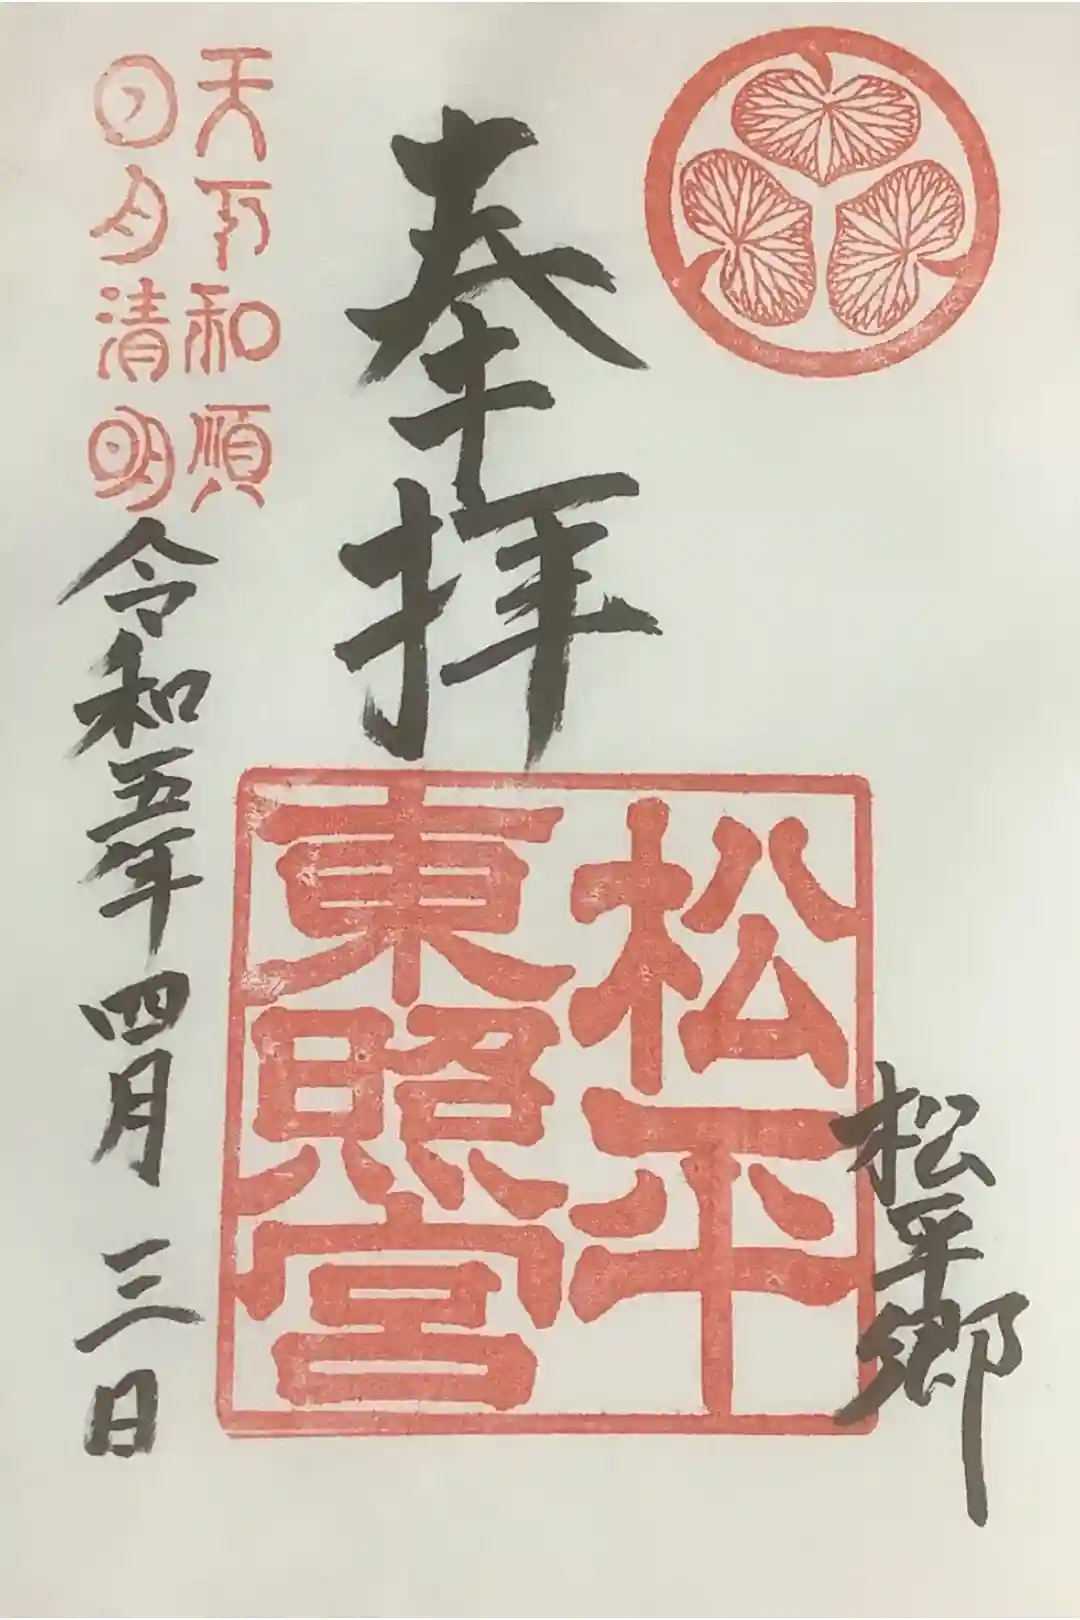 松平郷
松平
東照宮
奉拝
天下和順
日月清明
令和五年四月三日